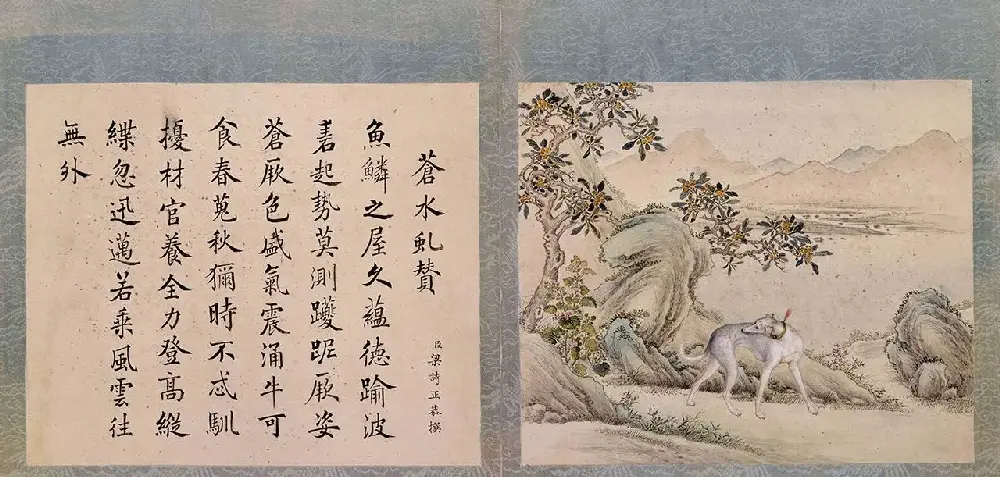 蒼水虬賛
臣梁詩正恭撰
魚鱗之屋久蘊德踰波
砉起勢莫測躩跜厥姿
蒼厥色盛氣震涌牛可
食春蒐秋獮時不忒馴
擾材官養全力登高縱
緤忽迅邁若乘風雲往
無外